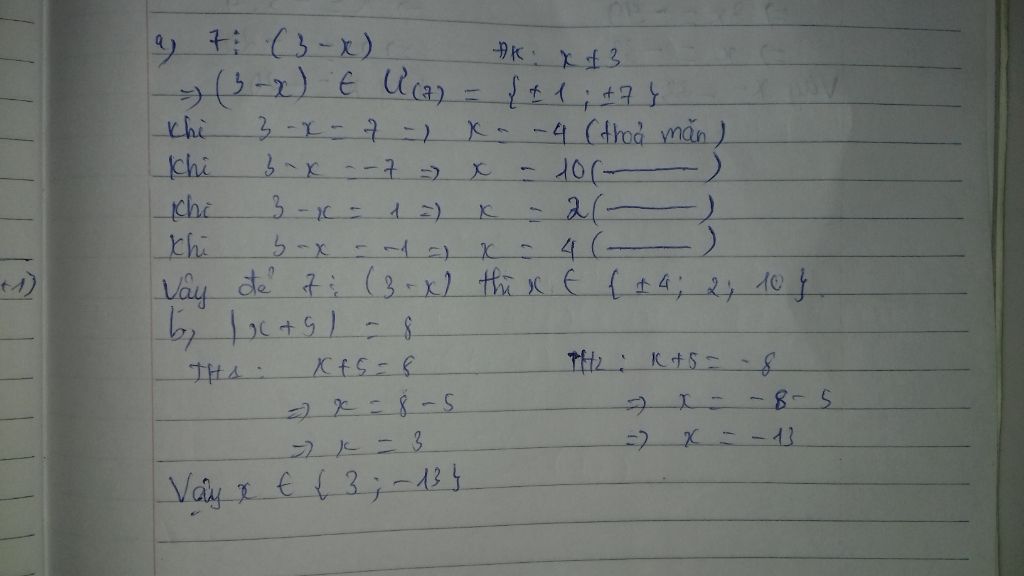 a, 7 ⋮ (3 - x) ĐK: x ≠ 3
=> (3 - x) ∈ Ư(7) = {±1 ; ±7}
Khi 3 - x = 7 => x = -4 (thoả mãn)
Khi 3 - x = -7 => x = 10 (———)
Khi 3 - x = 1 => x = 2 (———)
Khi 3 - x = -1 => x = 4 (———)
+1)
Vậy để 7 ⋮ (3 - x) thì x ∈ {±4; 2; 10}.
b, |x + 5| = 8
TH1: x + 5 = 8 TH2: x + 5 = -8
=> x = 8 - 5 => x = -8 - 5
=> x = 3 => x = -13
Vậy x ∈ {3 ; -13}